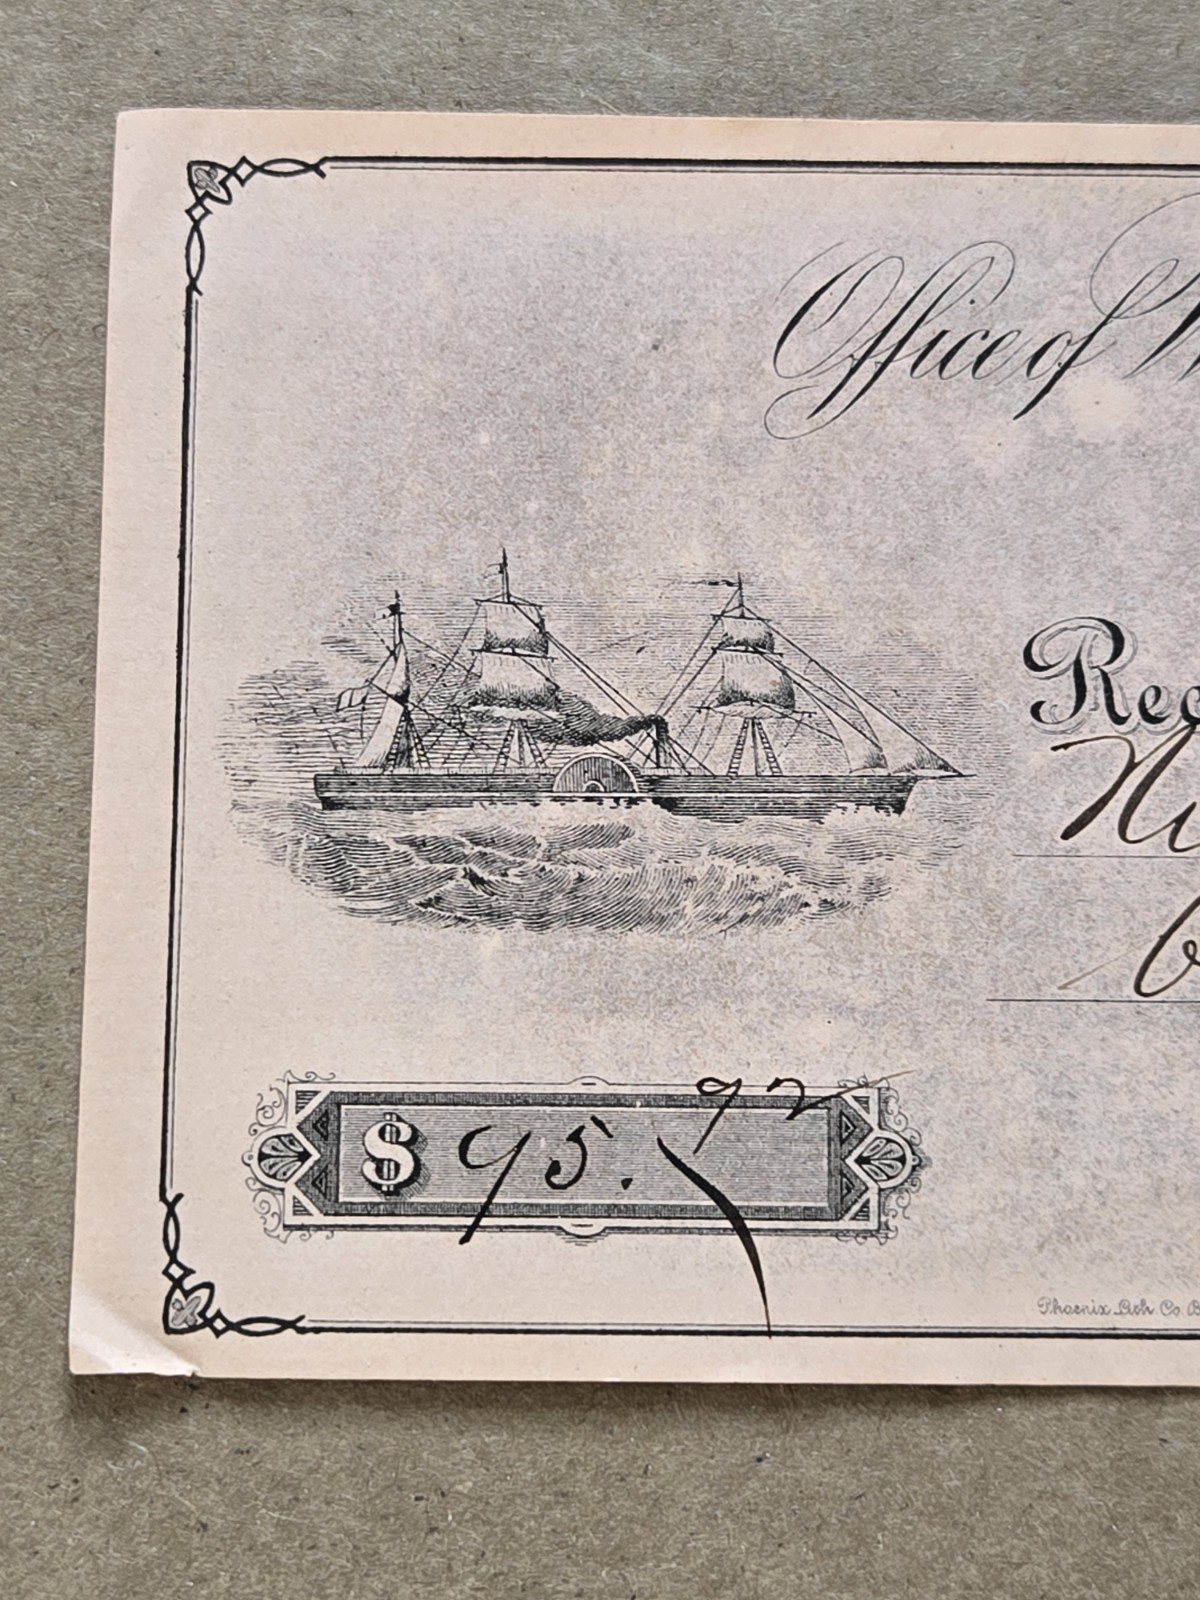 Office of W
Rec
Ni
$ 95. 92
Phoenix Lith. Co. B